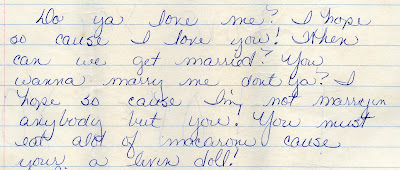 Do ya love me? I hope
so cause I love you! When
can we get married? You
wanna marry me dont ya? I
hope so cause I'm not marryin
anybody but you! You must
eat alot of macaroni cause
your a livin doll!